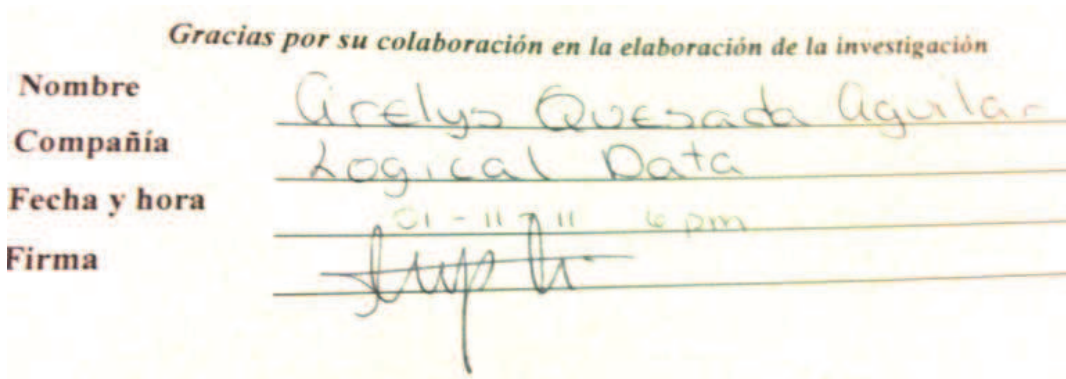 Gracias por su colaboración en la elaboración de la investigación
Nombre Arelys Quesada Aguilar
Compañía Logical Data
Fecha y hora 01-11-11 6 pm
Firma